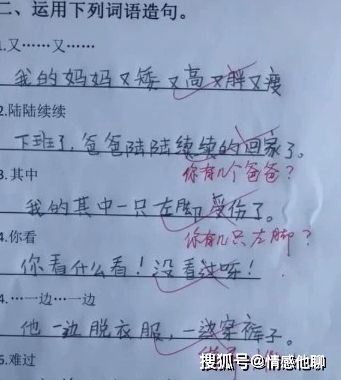 二、运用下列词语造句。
1.又……又……
我的妈妈又矮又高又胖又瘦
2.陆陆续续
下班了,爸爸陆陆续续的回家了。
你有几个爸爸?
3.其中
我的其中一只左脚受伤了。
你有几只左脚?
4.你看
你看什么看!没看过呀!
4.…一边…一边
他一边脱衣服,一边穿裤子。
5.难过
搜狐号@情感他聊